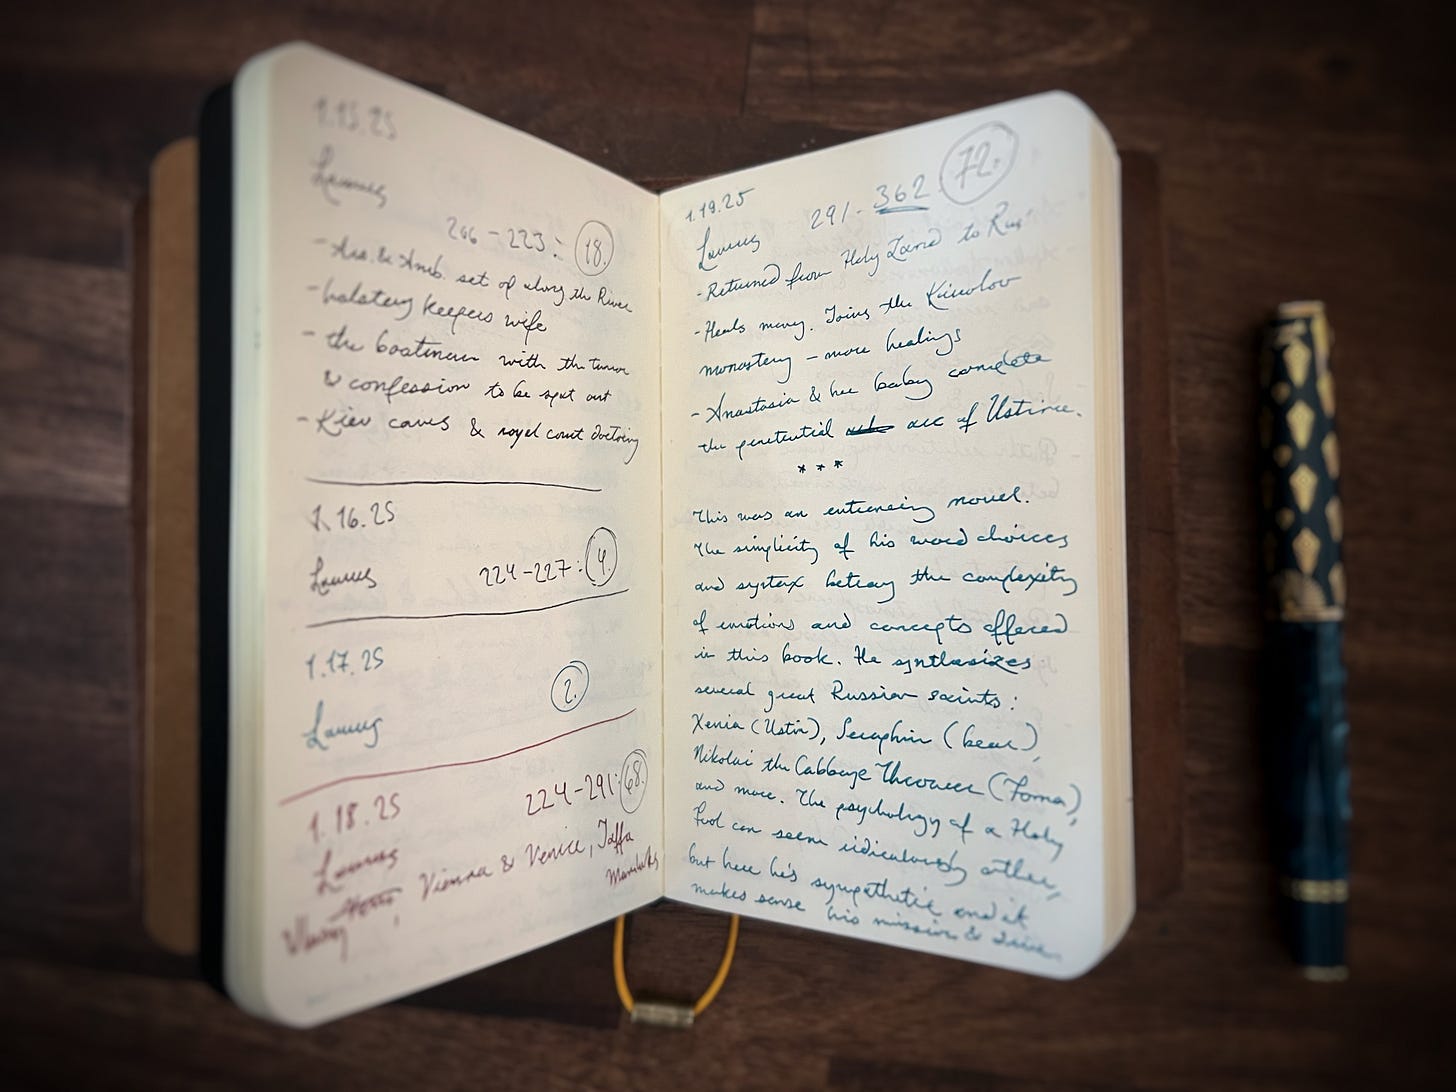 1.15.25
Laurus
206-223: 18.
- Ars. & Amb. set off along the River
- keepers wife
- the boatman with the tumor
& confession to be spit out
- Kiev caves & royal court doctoring
1.16.25
Laurus 224-227: 4.
1.17.25
Laurus 2.
1.18.25 224-291: 68.
Laurus
Vienna & Venice, Jaffa
Mamluks
1.19.25 291-362: 72.
Laurus
- Returned from Holy Land to Rus'
- Heals many. Joins the Kirillov
monastery - more healings
- Anastasia & her baby complete
the penetential arc of Ustina.
* * *
This was an entrancing novel.
The simplicity of his word choices
and syntax betray the complexity
of emotions and concepts offered
in this book. He synthesizes
several great Russian saints:
Xenia (Ustin), Seraphim (bear),
Nikolai the Cabbage Thrower (Foma),
and more. The psychology of a Holy
Fool can seem ridiculously outlier,
but here he's sympathetic and it
makes sense his mission &